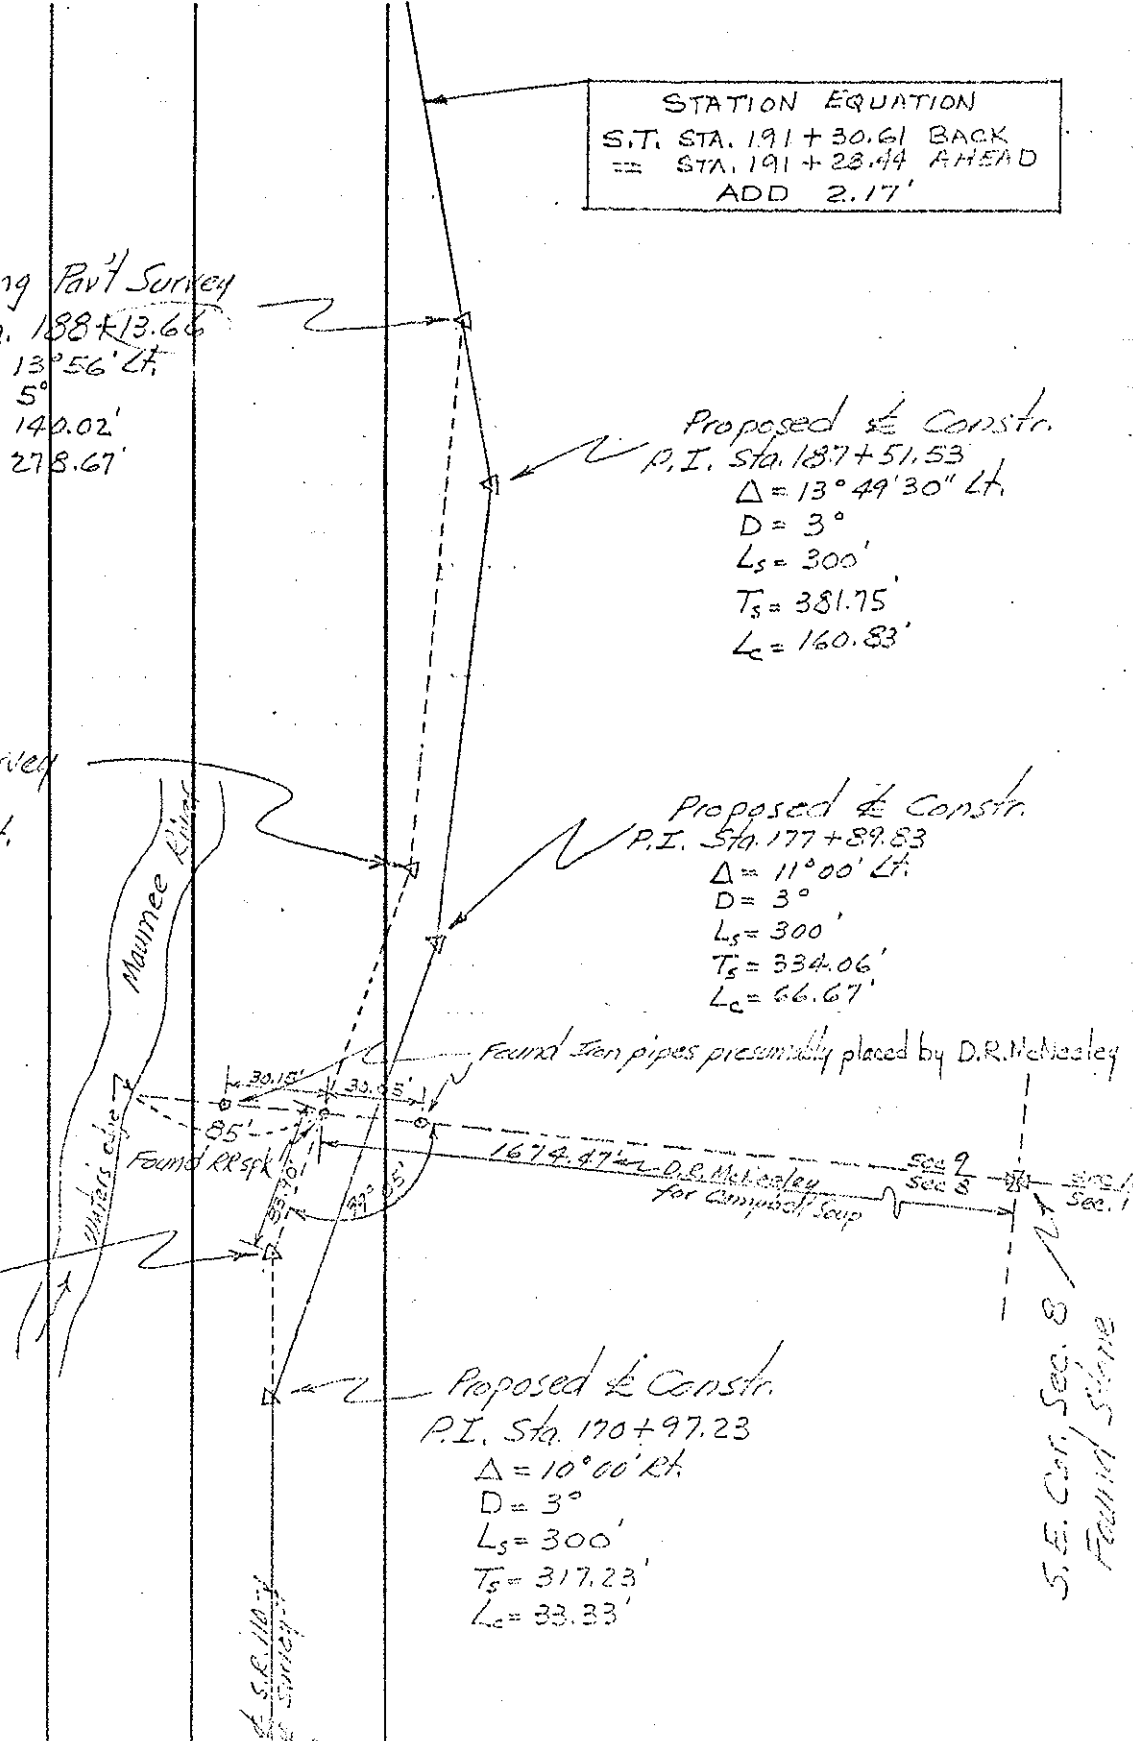 STATION EQUATION
S.T. STA. 191+30.61 BACK
= STA. 191+28.44 AHEAD
ADD 2.17'
ng Pav't Survey
188+13.66
13°56' Lt.
5°
140.02'
278.67'
Proposed ℄ Constr.
P.I. Sta. 187+51.53
Δ = 13°49'30" Lt.
D = 3°
Ls = 300'
Ts = 381.75'
Lc = 160.83'
rvey
t.
Maumee River
Proposed ℄ Constr.
P.I. Sta. 177+89.83
Δ = 11°00' Lt.
D = 3°
Ls = 300'
Ts = 334.06'
Lc = 66.67'
Found Iron pipes presumably placed by D.R. McNeeley
30.15' 30.05'
85'
Found RR spk
Waters edge
1674.47' D.R. McNeeley
for Campbell Soup
Sec 9
Sec 8
Sec. 1
S.E. Cor. Sec. 8
Found Stone
Proposed ℄ Constr.
P.I. Sta. 170+97.23
Δ = 10°00' Rt.
D = 3°
Ls = 300'
Ts = 317.23'
Lc = 33.33'
℄ S.R. 110
Survey